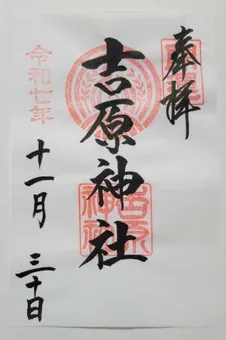 奉拝
吉原神社
吉原
神社
令和七年
十一月 三十日